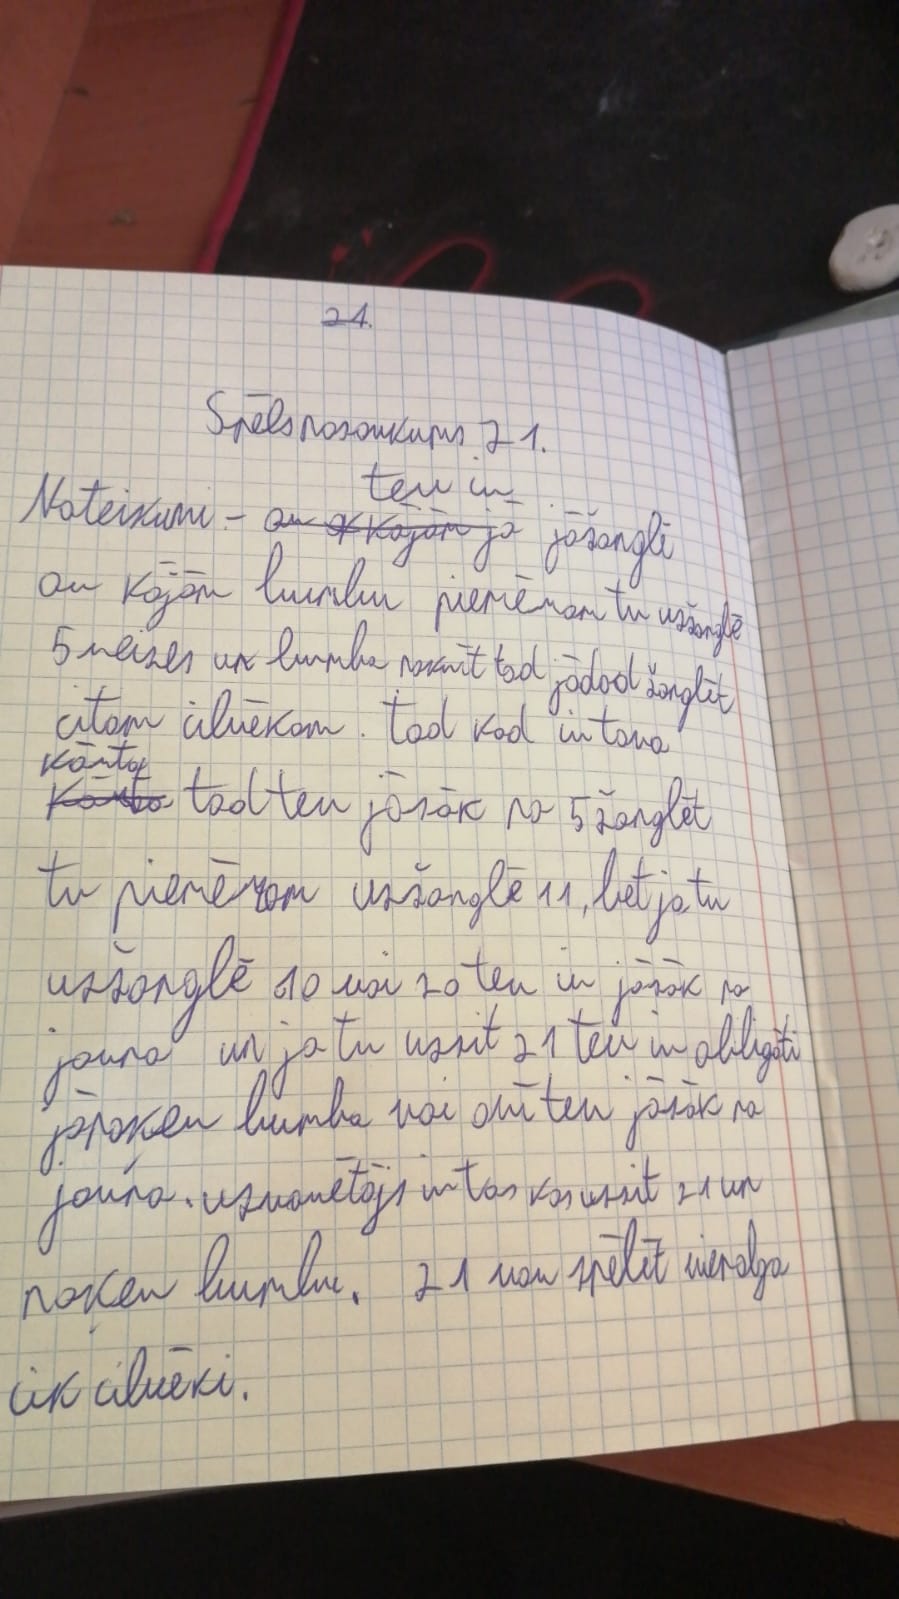 21.
Spēls nosaukums 21.
tev ir
Noteikumi - ar kājām jā jāžonglē
ar kājām bumbu pieņēmam tu uzžonglē
5 reizes un bumba nokrīt tad jādod žonglēt
citam cilvēkam. tad kad ir tava
kārta
Kārta tad tev jāsāk no 5 žonglēt
tu pieņēmam uzžonglē 11, bet ja tu
uzžonglē 10 vai 20 tev ir jāsāk no
jauna un ja tu uzsit 21 tev ir obligāti
jānoķer bumba vai arī tev jāsāk no
jauna. uzvarētājs ir tas kas uzsit 21 un
noķer bumbu. 21 var spēlēt vienalga
cik cilvēki.